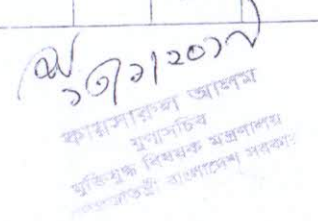 কায়সারুল আলম
যুগ্মসচিব
মুক্তিযুদ্ধ বিষয়ক মন্ত্রণালয়
গণপ্রজাতন্ত্রী বাংলাদেশ সরকার